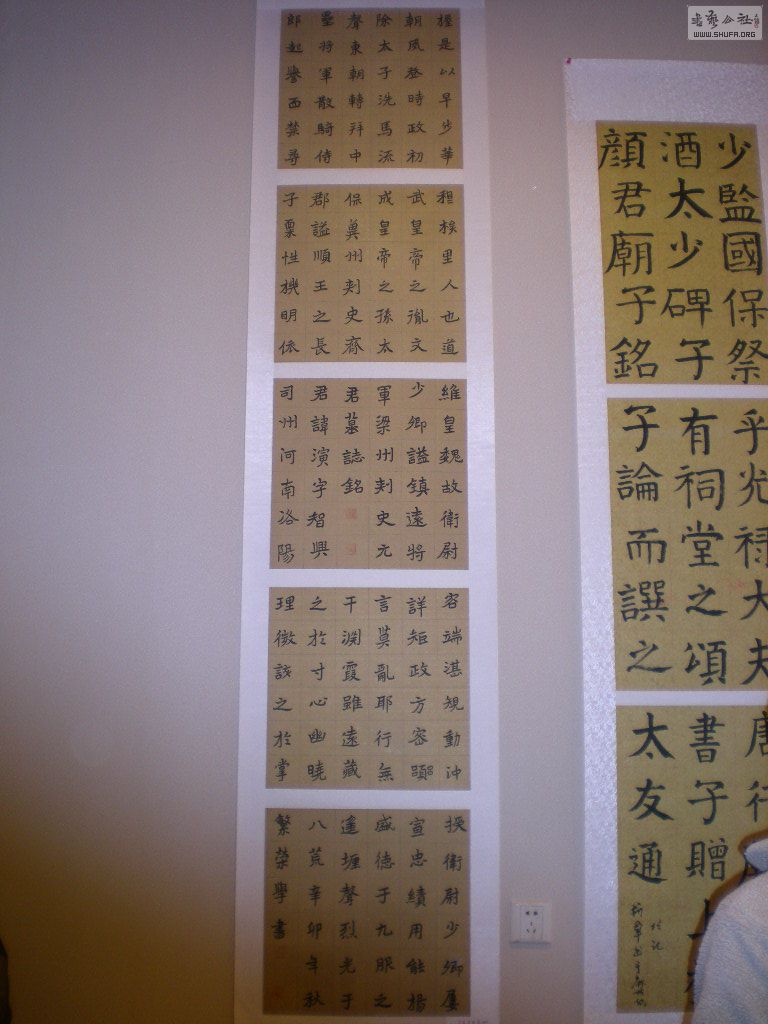 書藝公社
WWW.SHUFA.ORG
少監國保祭
酒太少碑子
顏君廟子銘
乎光祿大夫
有祠堂之頌
子論而譔之
唐行
書子贈上
太友通
握是以早步華
朝風發時政初
除太子洗馬流
聲東朝轉拜中
壘將軍散騎侍
郎起譽西禁尋
里人也道
武皇帝之胤文
成皇帝之孫太
保冀州刺史齊
郡謚順王之長
子稟性機明依
維皇魏故衛尉
少卿謚鎮遠將
軍梁州刺史元
君墓誌銘
君諱演字智興
司州河南洛陽
容端湛規動沖
詳矩政方容韻
言莫亂耶行無
干淵霞雖遠藏
之於寸心幽曉
理微該之於掌
授衛尉少卿屢
宣忠績用能揚
盛德于九服之
遙壥聲烈光于
八荒辛卯年秋
繁榮學書